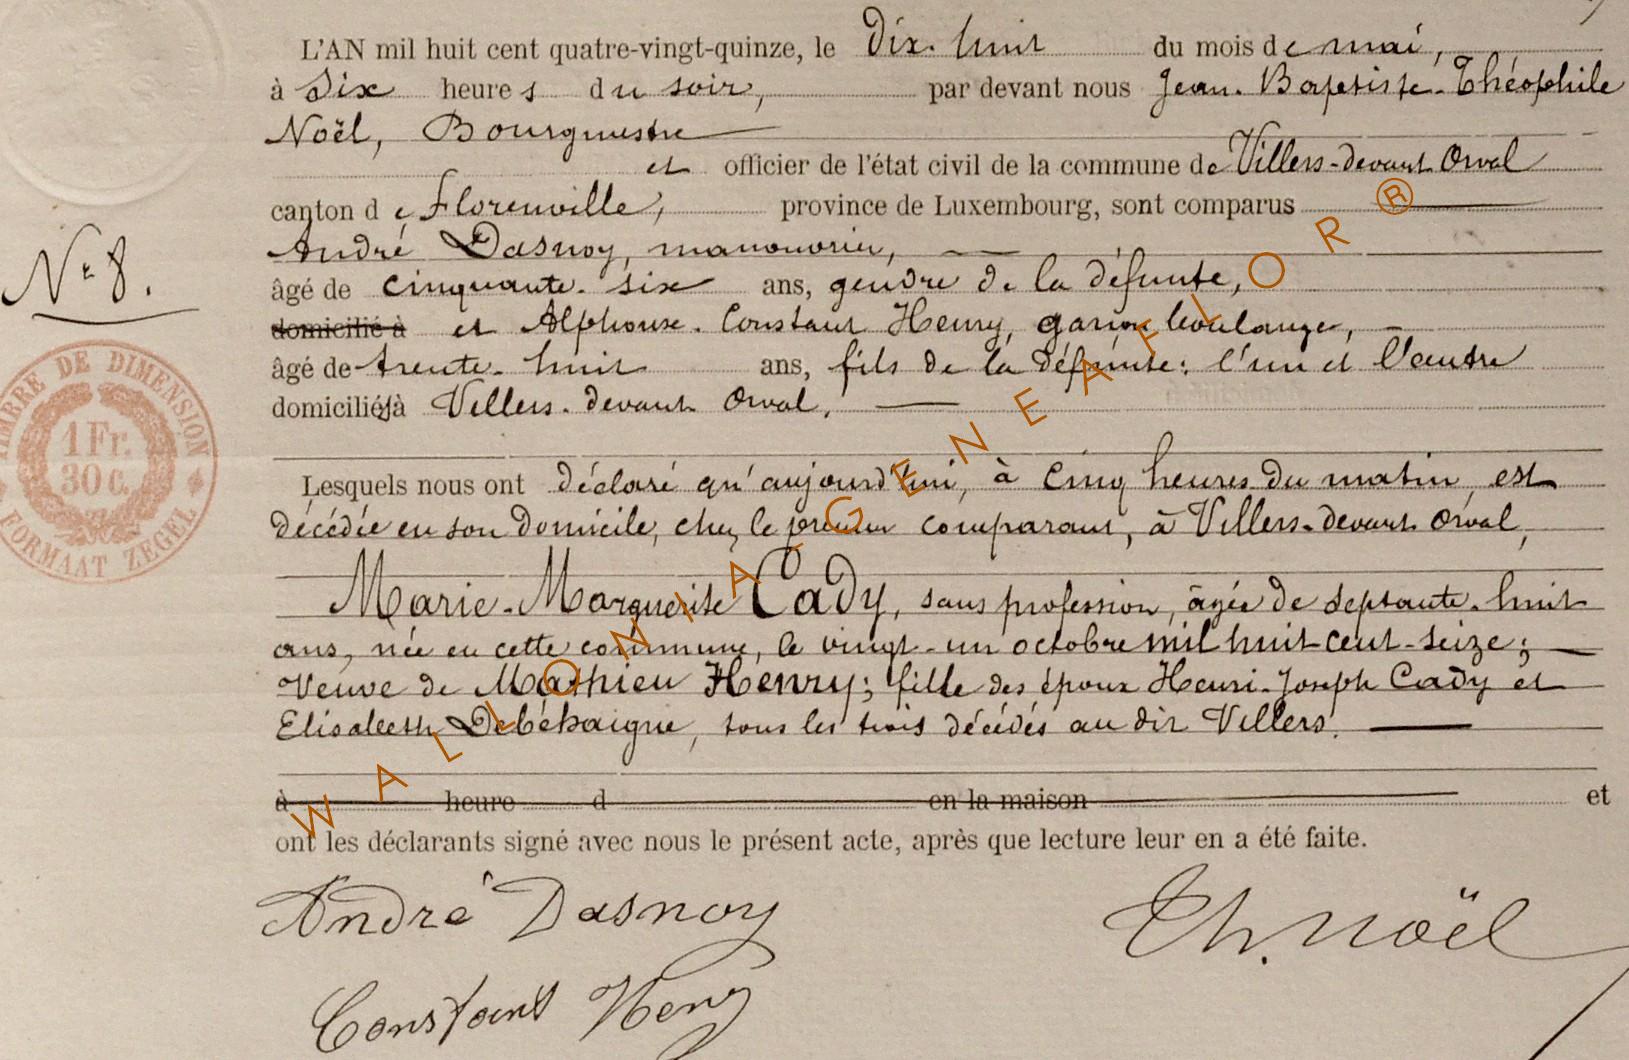 L'AN mil huit cent quatre-vingt-quinze, le dix-huit du mois de mai,
à Six heures du soir, par devant nous Jean-Baptiste-Théophile
Noël, Bourgmestre
et officier de l'état civil de la commune de Villers-devant Orval
canton de Florenville, province de Luxembourg, sont comparus
André Dasnoy, manouvrier,
âgé de cinquante-six ans, gendre de la défunte,
N° 8.
domicilié à et Alphonse-Constant Henry, garçon boulanger,
âgé de trente-huit ans, fils de la défunte; l'un et l'autre
domiciliés à Villers-devant Orval.
TIMBRE DE DIMENSION
1 Fr.
30 c.
FORMAAT ZEGEL
Lesquels nous ont déclaré qu'aujourd'hui, à cinq heures du matin, est
décédée en son domicile, chez le premier comparant, à Villers-devant Orval,
Marie-Marguerite Cady, sans profession, âgée de septante-huit
ans, née en cette commune, le vingt-un octobre mil huit-cent-seize;
Veuve de Mathieu Henry; fille des époux Henri-Joseph Cady et
Elisabeth Debéhaigne, tous les trois décédés au dit Villers.
à heure d en la maison et
ont les déclarants signé avec nous le présent acte, après que lecture leur en a été faite.
André Dasnoy
Th. Noël
Constant Henry
WALLONIA-GENEAFLOR ®